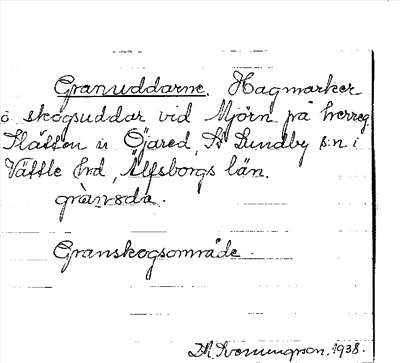 Granuddarne. Hagmarker
o skogsuddar vid Mjörn på herreg.
Öjared, St Lundby s:n i
Vättle hrd, Älfsborgs län.
Granskogsområde.
1938.